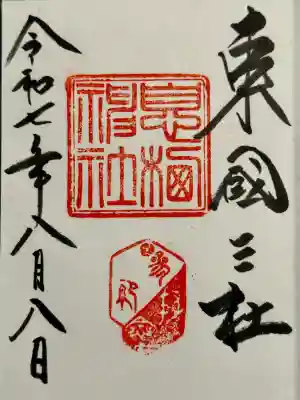 東國三社
息栖神社
令和七年八月八日